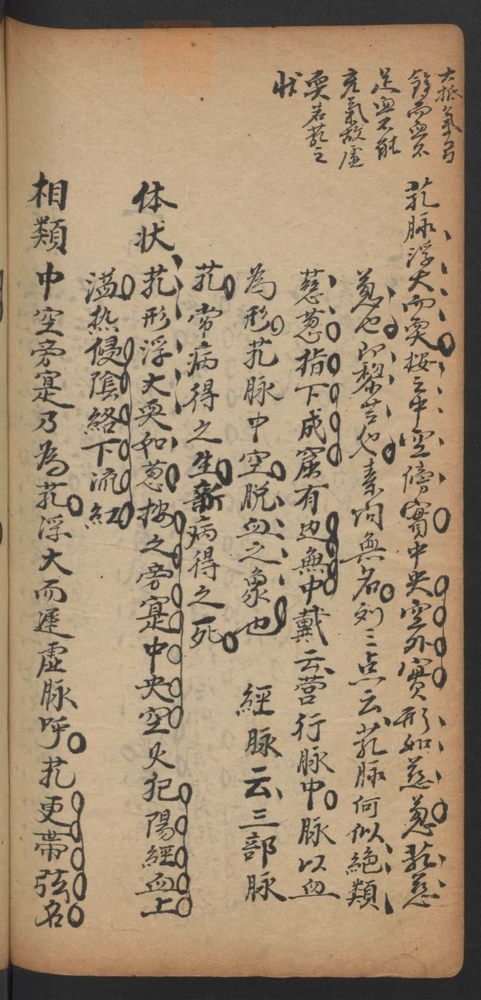 大抵氣有
餘而血不
足血不能
充氣故虛
耎若芤之
状
芤脉浮大而耎按之中空傍實中央空外實形如慈葱芤慈
葱也即藜芦也素问無名刘三点云芤脉何似絶類
慈葱指下成窟有边無中戴云营行脉中脉以血
為形芤脉中空脱血之象也 經脉云三部脉
芤常病得之生新病得之死
体状 芤形浮大耎如葱按之旁寔中央空火犯陽經血上
溢热侵陰絡下流紅
相類 中空旁寔乃為芤浮大而遲虛脉呼芤更帶弦名